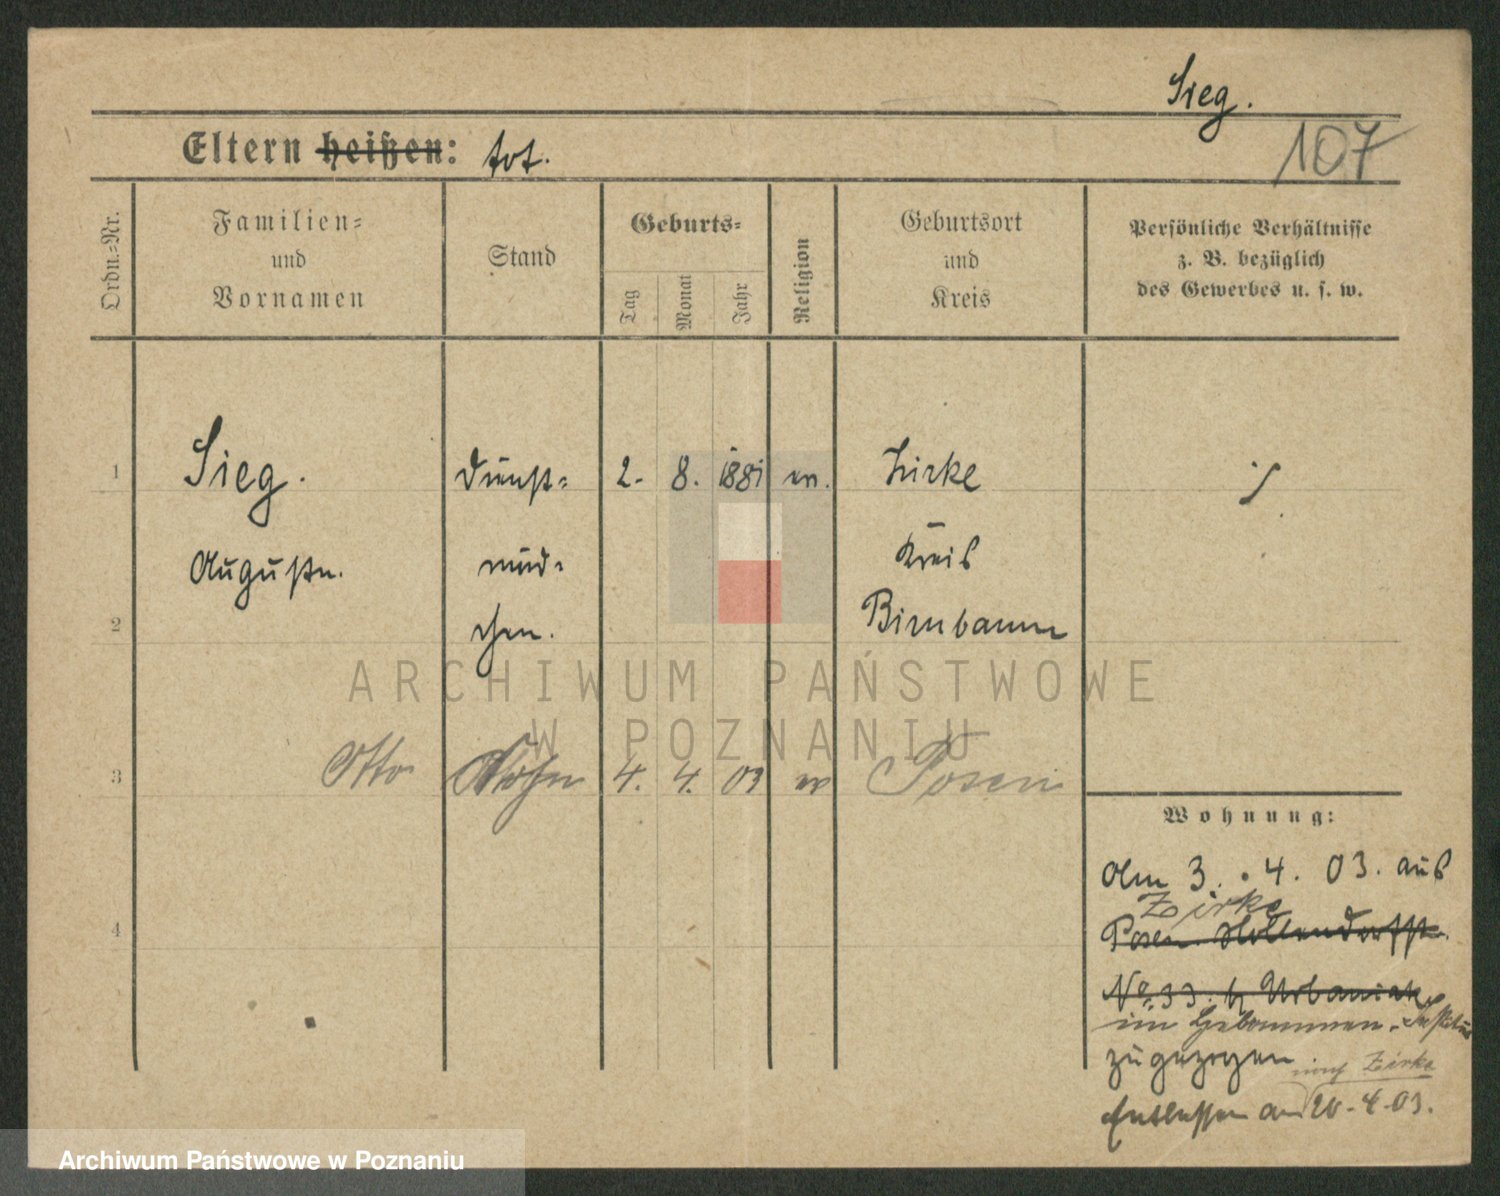 Sieg.
107
Eltern heißen: tot.
Ordn.-Nr.
Familien-
und
Vornamen
Stand
Geburts-
Tag
Monat
Jahr
Religion
Geburtsort
und
Kreis
Persönliche Verhältnisse
z. B. bezüglich
des Gewerbes u. s. w.
1 Sieg. Dienst- 2. 8. 1881 ev. Zirke
Auguste. mäd- Kreis
2 chen. Birnbaum
ARCHIWUM PAŃSTWOWE
W POZNANIU
3 Otto Sohn 4. 4. 03 ev Posen
4
Wohnung:
Am 3. 4. 03. aus
Zirke
Posen. Hollendorffstr.
No 33. b Urbaniak
im Hebammen-Institut
zugezogen nach Zirke
Entlassen am 20.4.03.
Archiwum Państwowe w Poznaniu